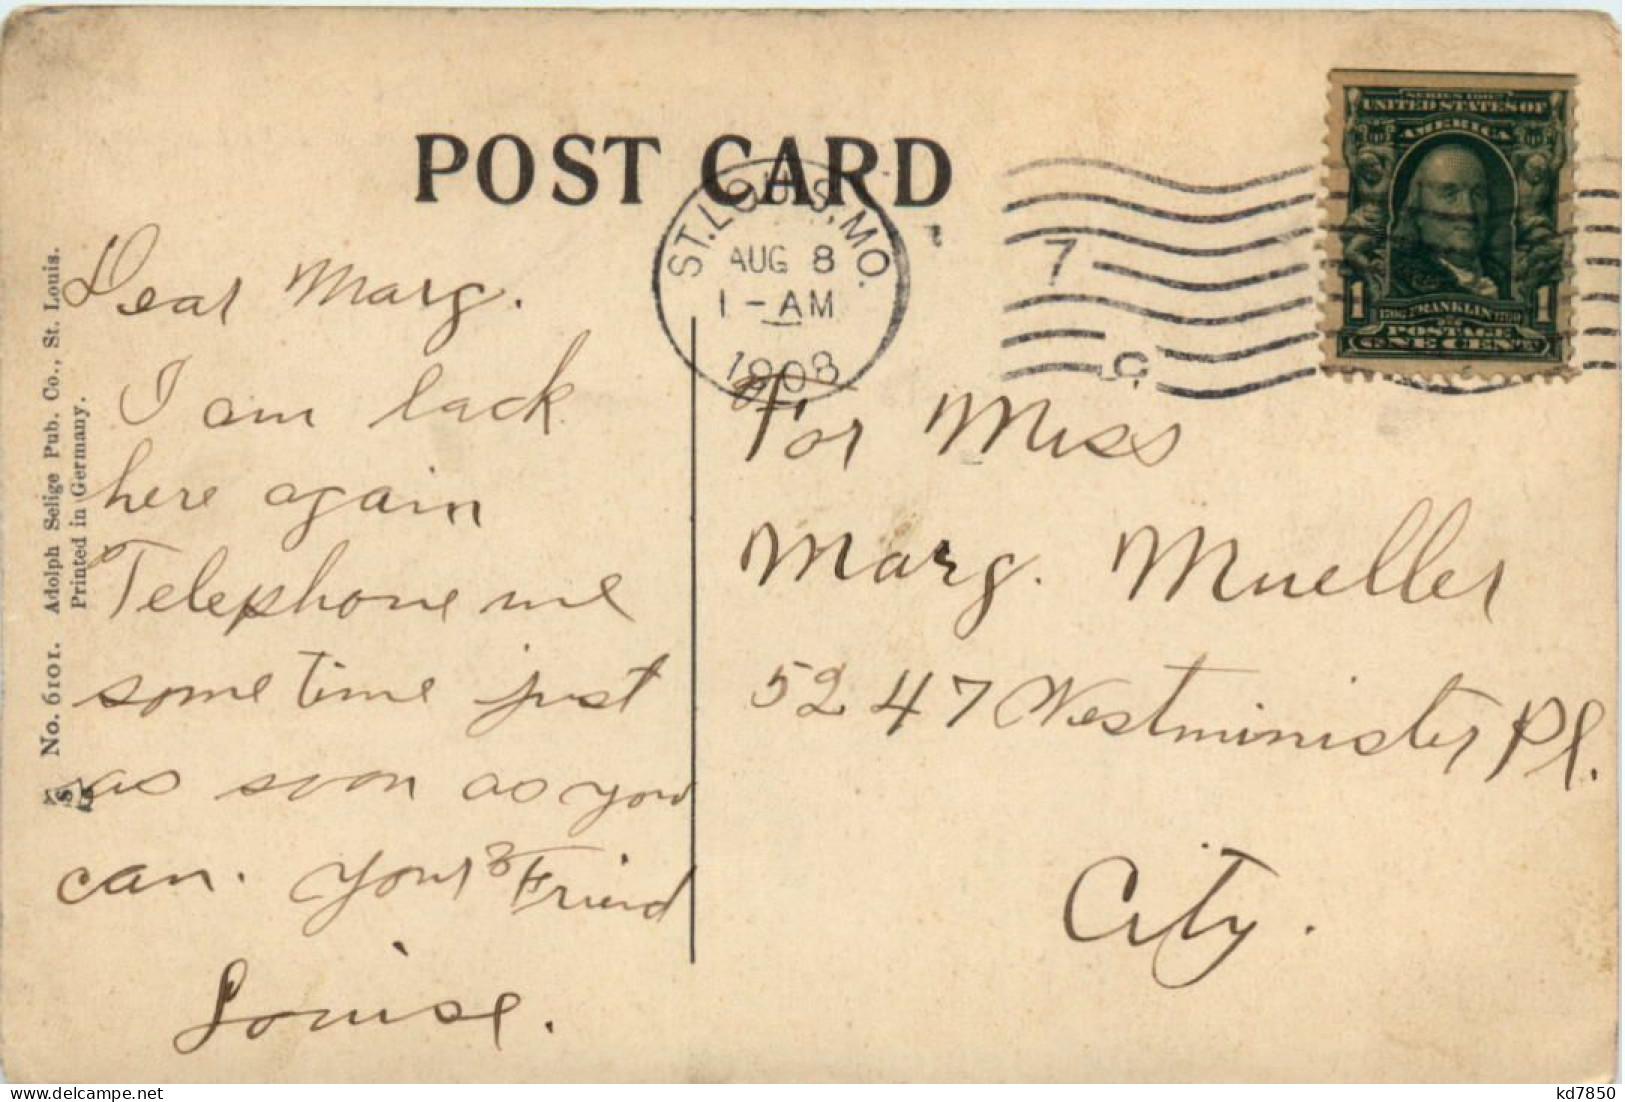 POST CARD
ST. LOUIS, MO.
AUG 8
1 - AM
1908
7
C
SERIES 1902
UNITED STATES OF
AMERICA
1706 FRANKLIN 1790
POSTAGE
1 1
ONE CENT
No. 6101. Adolph Selige Pub. Co., St. Louis.
Printed in Germany.
Dear Marg.
I am back
here again
Telephone me
some time just
as soon as you
can. Your Friend
Louise.
For Miss
Marg. Mueller
5247 Westminister Pl.
City.
delcampe.net
kd7850